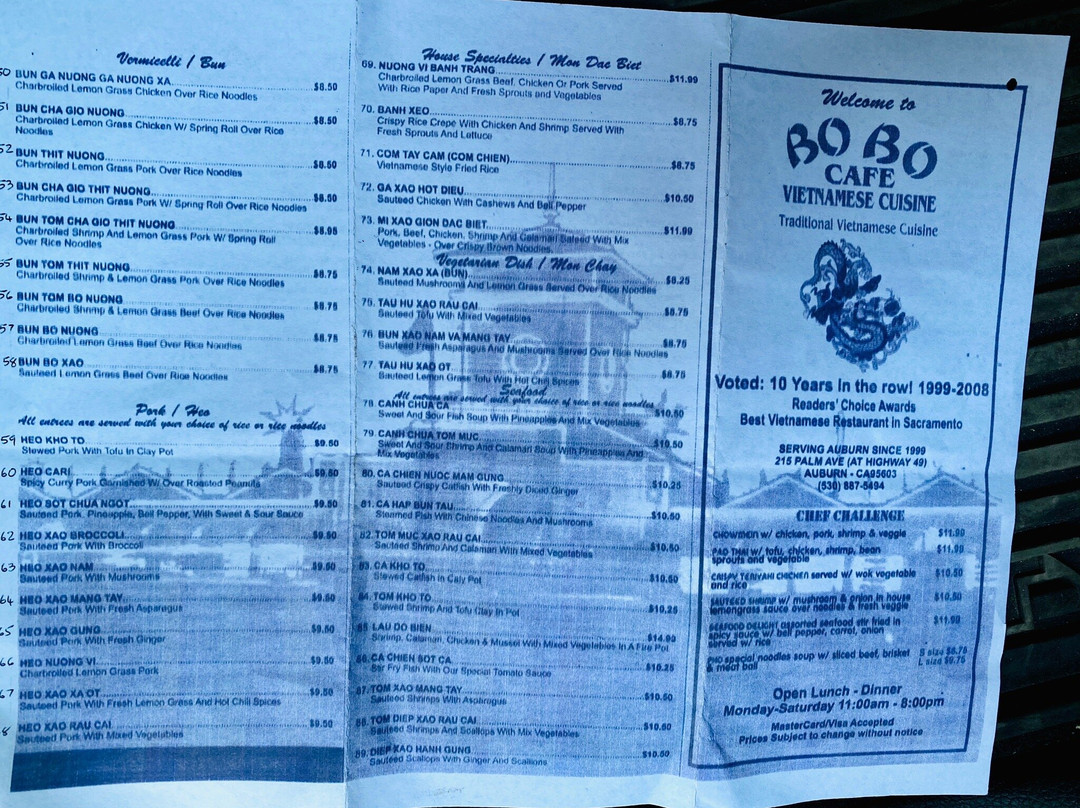 Vermicelli / Bun
50 BUN GA NUONG GA NUONG XA $8.50
Charbroiled Lemon Grass Chicken Over Rice Noodles
51 BUN CHA GIO NUONG $8.50
Charbroiled Lemon Grass Chicken W/ Spring Roll Over Rice
Noodles
52 BUN THIT NUONG $8.50
Charbroiled Lemon Grass Pork Over Rice Noodles
53 BUN CHA GIO THIT NUONG $8.50
Charbroiled Lemon Grass Pork W/ Spring Roll Over Rice Noodles
54 BUN TOM CHA GIO THIT NUONG $8.95
Charbroiled Shrimp And Lemon Grass Pork W/ Spring Roll
Over Rice Noodles
55 BUN TOM THIT NUONG $8.75
Charbroiled Shrimp & Lemon Grass Pork Over Rice Noodles
56 BUN TOM BO NUONG $8.75
Charbroiled Shrimp & Lemon Grass Beef Over Rice Noodles
57 BUN BO NUONG $8.75
Charbroiled Lemon Grass Beef Over Rice Noodles
58 BUN BO XAO $8.75
Sauteed Lemon Grass Beef Over Rice Noodles
Pork / Heo
All entrees are served with your choice of rice or rice noodles
59 HEO KHO TO $9.50
Stewed Pork With Tofu In Clay Pot
60 HEO CARI $9.50
Spicy Curry Pork Garnished W/ Over Roasted Peanuts
61 HEO SOT CHUA NGOT $9.50
Sauteed Pork, Pineapple, Bell Pepper, With Sweet & Sour Sauce
62 HEO XAO BROCCOLI $9.50
Sauteed Pork With Broccoli
63 HEO XAO NAM $9.50
Sauteed Pork With Mushrooms
64 HEO XAO MANG TAY $9.50
Sauteed Pork With Fresh Asparagus
65 HEO XAO GUNG $9.50
Sauteed Pork With Fresh Ginger
66 HEO NUONG VI $9.50
Charbroiled Lemon Grass Pork
67 HEO XAO XA OT $9.50
Sauteed Pork With Fresh Lemon Grass And Hot Chili Spices
8 HEO XAO RAU CAI $9.50
Sauteed Pork With Mixed Vegetables
House Specialties / Mon Dac Biet
69. NUONG VI BANH TRANG $11.99
Charbroiled Lemon Grass Beef, Chicken Or Pork Served
With Rice Paper And Fresh Sprouts and Vegetables
70. BANH XEO $8.75
Crispy Rice Crepe With Chicken And Shrimp Served With
Fresh Sprouts And Lettuce
71. COM TAY CAM (COM CHIEN) $8.75
Vietnamese Style Fried Rice
72. GA XAO HOT DIEU $10.50
Sauteed Chicken With Cashews And Bell Pepper
73. MI XAO GION DAC BIET $11.99
Pork, Beef, Chicken, Shrimp And Calamari Sateed With Mix
Vegetables - Over Crispy Brown Noodles.
Vegetarian Dish / Mon Chay
74. NAM XAO XA (BUN) $8.25
Sauteed Mushrooms And Lemon Grass Served Over Rice Noodles
75. TAU HU XAO RAU CAI $8.75
Sauteed Tofu With Mixed Vegetables
76. BUN XAO NAM VA MANG TAY $8.75
Sauteed Fresh Asparagus And Mushrooms Served Over Rice Noodles
77. TAU HU XAO OT $8.75
Sauteed Lemon Grass Tofu With Hot Chili Spices
Seafood
All entrees are served with your choice of rice or rice noodles
78. CANH CHUA CA $10.50
Sweet And Sour Fish Soup With Pineapples And Mix Vegetables
79. CANH CHUA TOM MUC $10.50
Sweet And Sour Shrimp And Calamari Soup With Pineapples And
Mix Vegetables
80. CA CHIEN NUOC MAM GUNG $10.25
Sauteed Crispy Catfish With Freshly Diced Ginger
81. CA HAP BUN TAU $10.50
Steamed Fish With Chinese Noodles And Mushrooms
82. TOM MUC XAO RAU CAI $10.50
Sauteed Shrimp And Calamari With Mixed Vegetables
83. CA KHO TO $10.50
Stewed Catfish In Caly Pot
84. TOM KHO TO $10.25
Stewed Shrimp And Tofu Clay In Pot
85 LAU DO BIEN $14.99
Shrimp, Calamari, Chicken & Mussel With Mixed Vegetables In A Fire Pot
86. CA CHIEN SOT CA $10.25
Stir Fry Fish With Our Special Tomato Sauce
87. TOM XAO MANG TAY $10.50
Sauteed Shrimps With Asparagus
88. TOM DIEP XAO RAU CAI $10.50
Sauteed Shrimps And Scallops With Mix Vegetables
89. DIEP XAO HANH GUNG $10.50
Sauteed Scallops With Ginger And Scallions
Welcome to
BO BO
CAFE
VIETNAMESE CUISINE
Traditional Vietnamese Cuisine
Voted: 10 Years In the row! 1999-2008
Readers' Choice Awards
Best Vietnamese Restaurant in Sacramento
SERVING AUBURN SINCE 1999
215 PALM AVE (AT HIGHWAY 49)
AUBURN - CA95603
(530) 887-5494
CHEF CHALLENGE
CHOWMAN w/ chicken, pork, shrimp & veggie $11.99
PAD THAI w/ tofu, chicken, shrimp, bean $11.99
sprouts and vegetable
CRISPY TERIYAHI CHICHEN served w/ wok vegetable $10.50
and rice
SAUTEED SHRIMP w/ mushroom & onion in house $10.50
lemongrass sauce over noodles & fresh veggie
SEAFOOD DELIGHT assorted seafood stir fried in $11.99
spicy sauce w/ bell pepper, carrot, onion
served w/ rice
PHO special noodles soup w/ sliced beef, brisket S size $8.75
& meat ball L size $9.75
Open Lunch - Dinner
Monday-Saturday 11:00am - 8:00pm
MasterCard/Visa Accepted
Prices Subject to change without notice